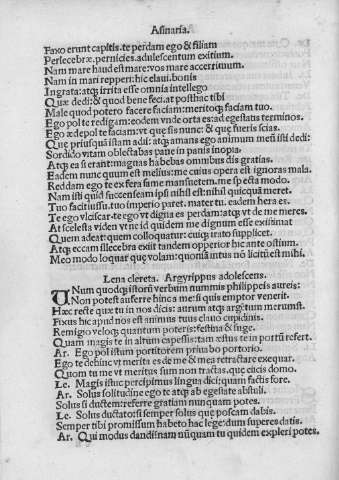 Asinaria.
Faxo erunt capitis. te perdam ego & filiam
Perlecebræ. pernicies. adulescentum exitium.
Nam mare haud est mare: vos mare acerrimum.
Nam in mari repperi: hic elaui. bonis
Ingrata: atq; irrita esse omnia intellego
Quæ dedi: & quod bene feci. at posthac tibi
Male quod potero facere faciam: meritoq; faciam tuo.
Ego pol te redigam: eodem vnde orta es: ad egestatis terminos.
Ego ædepol te faciam: vt que sis nunc: & que fueris scias.
Que priusquã istam adii: atq; amans ego animum meũ isti dedi:
Sordido vitam oblectabas pane in panis inopia.
Atq; ea si erant: magnas habebas omnibus dis gratias.
Eadem nunc quum est melius: me cuius opera est ignoras mala.
Reddam ego te ex fera fame mansuetem. me specta modo.
Nam isti quid succenseam ipsi nihil est: nihil quicquã meret.
Tuo facit iussu. tuo imperio paret. mater tu. eadem hera es.
Te ego vlciscar. te ego vt digna es perdam: atq; vt de me meres.
At scelesta viden vt ne id quidem me dignum esse existimat
Quem adeat: quem colloquatur: cuiq; irato supplicet.
Atq; eccam illecebra exiit tandem opperior hic ante ostium.
Meo modo loquar que volam: quoniã intus nõ licitũ est mihi.
Lena clereta. Argyrippus adolescens.
VNum quodq; istorũ verbum nummis philippeis aureis:
Non potest auferre hinc a me: si quis emptor venerit.
Hæc recte quæ tu in nos dicis: aurum atq; argẽtum merumst.
Fixus hic apud nos est animus tuus clauo cupidinis.
Remigio veloq; quantum poteris: festina & fuge.
Quam magis te in altum capessis: tam æstus te in portũ refert.
Ar. Ego pol istum portitorem priuabo portorio.
Ego te dehinc vt merita es de me & mea re tractare exequar.
Quom tu me vt meritus sum non tractas. que eiicis domo.
Le. Magis istuc percipimus lingua dici: quam factis fore.
Ar. Solus solitudine ego te atq; ab egestate abstuli.
Solus si ductem: referre gratiam nunquam potes.
Le. Solus ductato: si semper solus que poscam dabis.
Semper tibi promissum habeto hac lege: dum superes datis.
Ar. Qui modus dandi: nam nũquam tu quidem expleri potes.